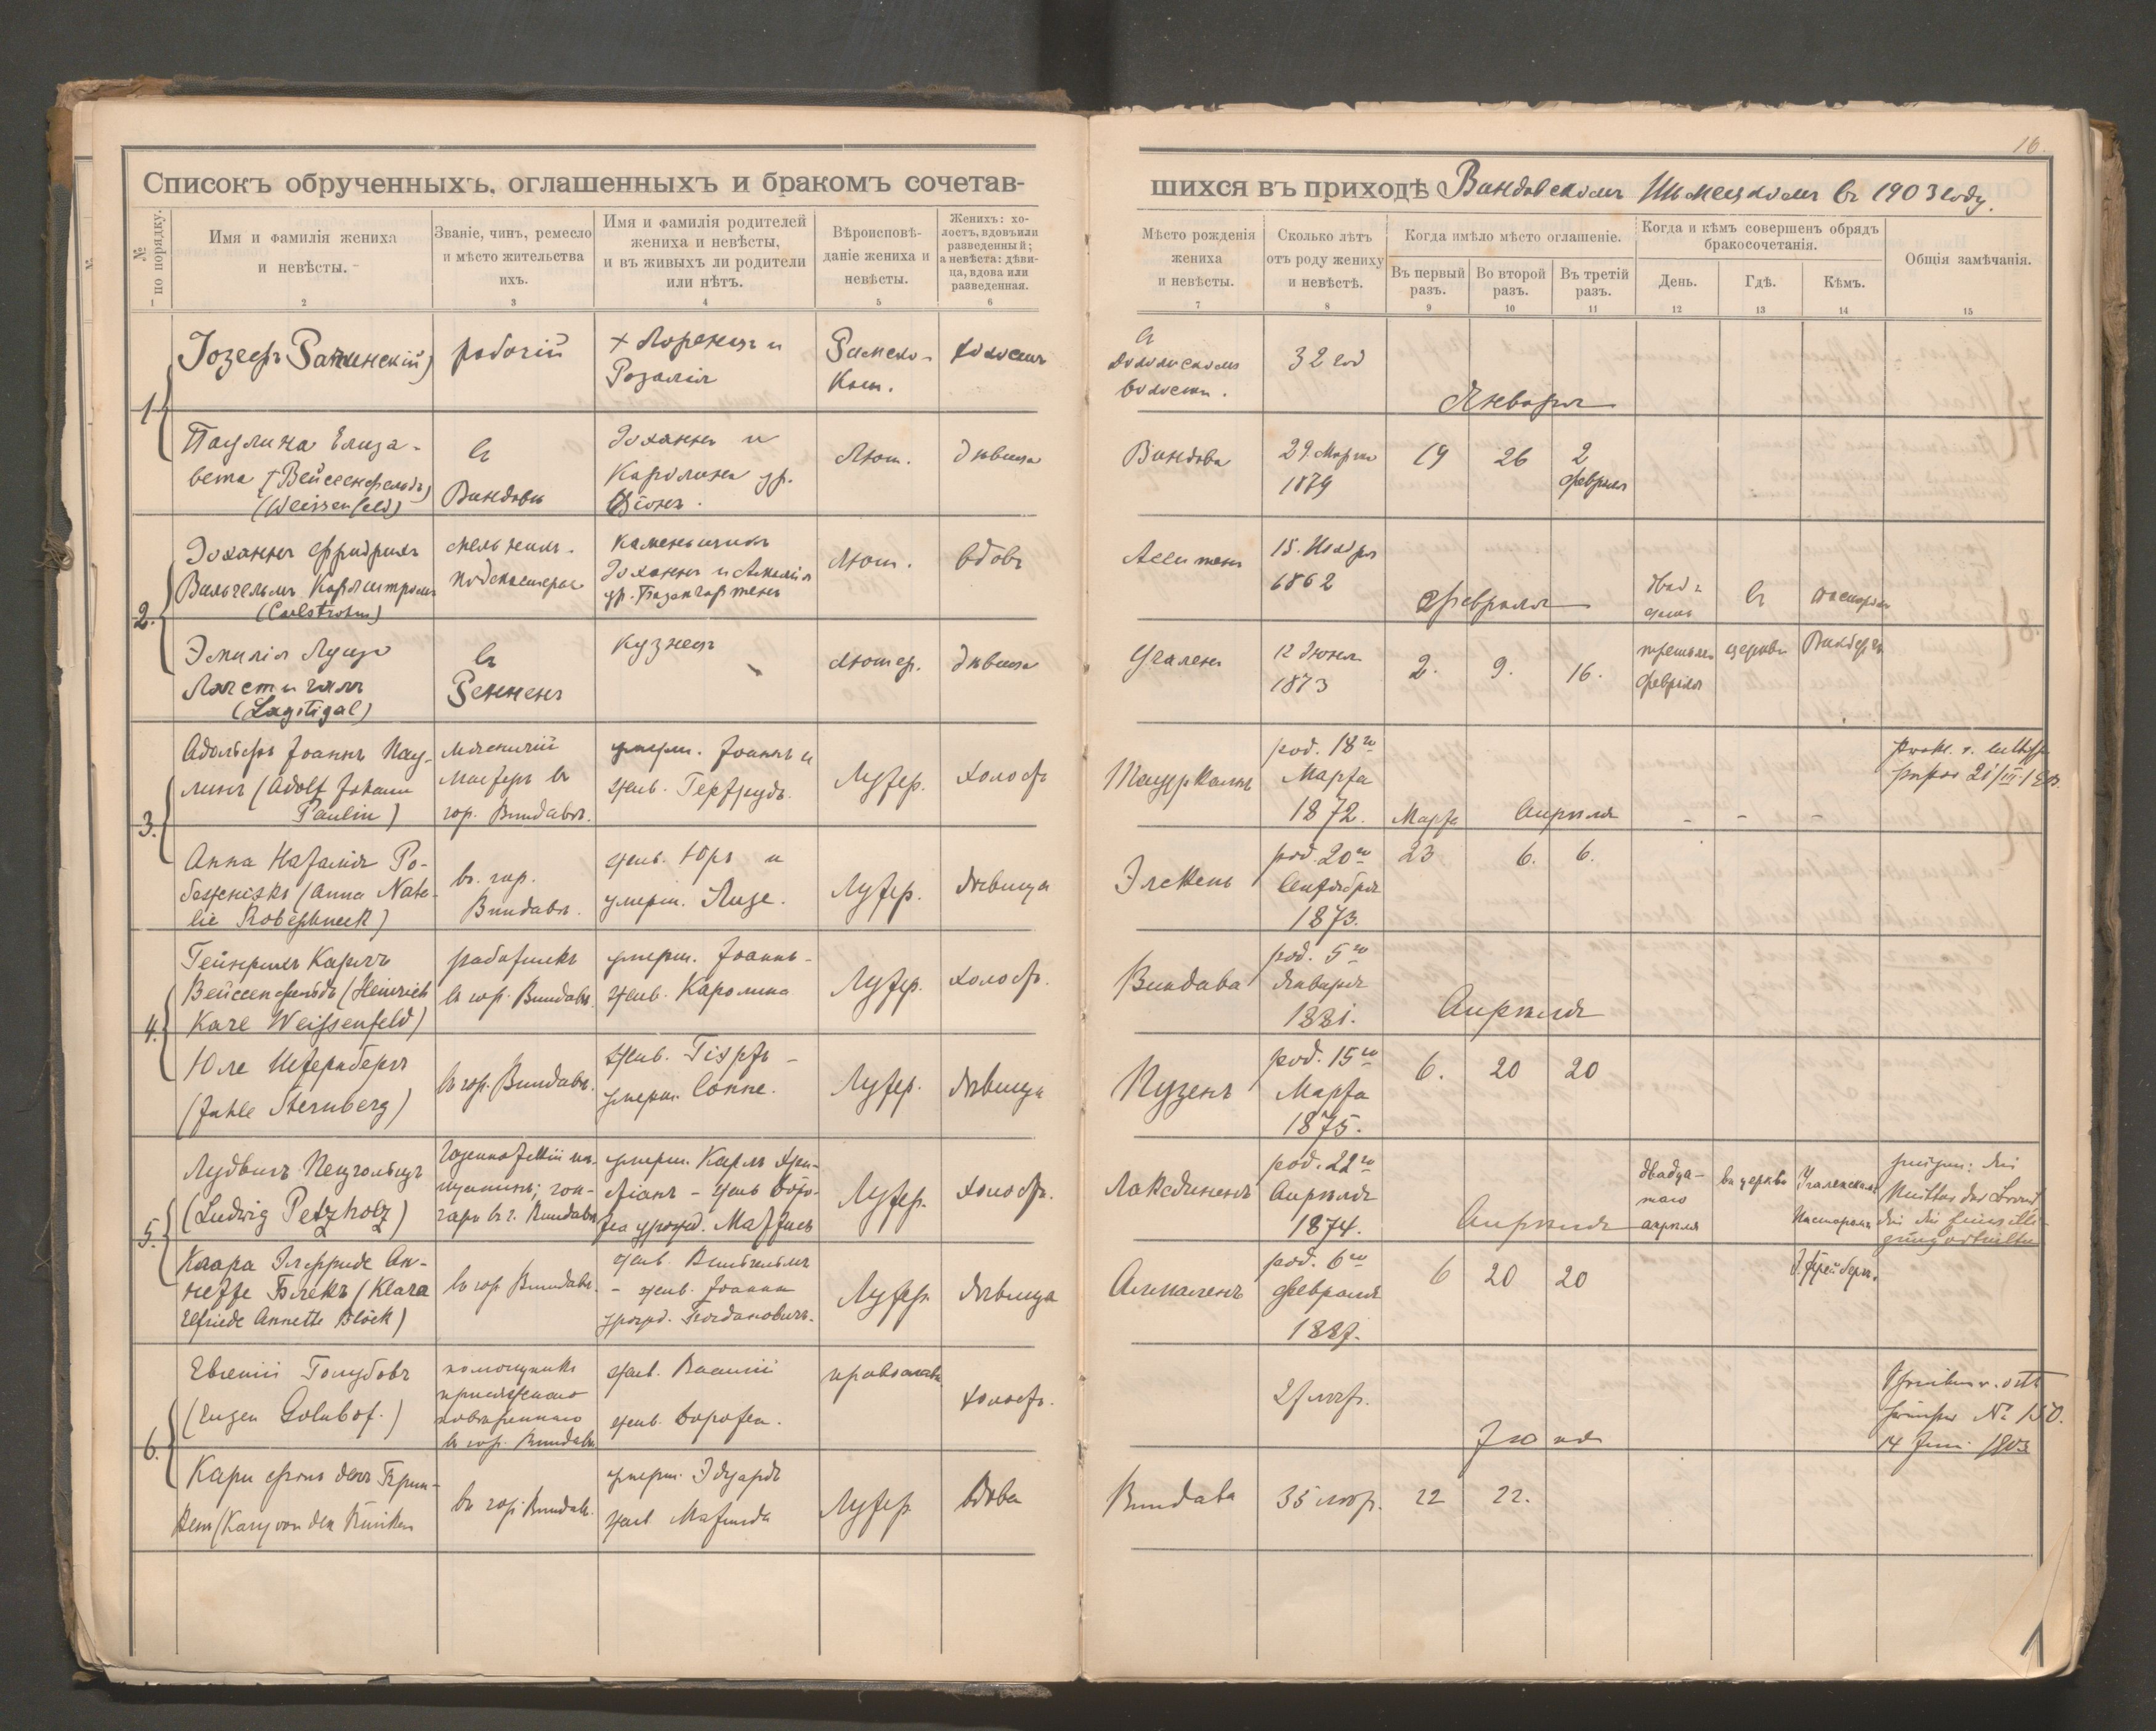 16.
Списокъ обрученныхъ, оглашенныхъ и бракомъ сочетав-
шихся въ приходѣ Виндавскомъ Нѣмецкомъ въ 1903 году.
№ по порядку.
Имя и фамилія жениха
и невѣсты.
Званіе, чинъ, ремесло
и мѣсто жительства
ихъ.
Имя и фамилія родителей
жениха и невѣсты,
и въ живыхъ ли родители
или нѣтъ.
Вѣроисповѣ-
даніе жениха и
невѣсты.
Женихъ: хо-
лостъ, вдовъ или
разведенный;
а невѣста: дѣви-
ца, вдова или
разведенная.
Мѣсто рожденія
жениха
и невѣсты.
Сколько лѣтъ
отъ роду жениху
и невѣстѣ.
Когда имѣло мѣсто оглашеніе.
Въ первый
разъ.
Во второй
разъ.
Въ третій
разъ.
Когда и кѣмъ совершенъ обрядъ
бракосочетанія.
День.
Гдѣ.
Кѣмъ.
Общія замѣчанія.
1 2 3 4 5 6 7 8 9 10 11 12 13 14 15
1.
Іозефъ
рабочій
+ Лоренцъ и
Розалія
Римско-
Кат.
холостъ
въ
волости.
32 год
Января
Паулина Елиза-
вета Вейссенфельдъ
(Weissenfeld)
въ
Виндавѣ
Іоханнъ и
Каролина ур.
Лют.
дѣвица
Виндава
29 Марта
1879
19 26 2
февраля
2.
Іоханнъ Фридрихъ
Вильгельмъ Карлштромъ
(Carlstrohm)
мельничн.
подмастерье
каменьщикъ
Іоханнъ и Амалія
ур. Баумгартенъ
Лют.
вдовъ
15. Ноября
1862
Февраля
двад-
цать
въ
пасторъ
Эмилія Луизе
Лагстигаль
(Lagstigal)
въ
Ренненъ
кузнецъ
лютер.
дѣвица
Угаленъ
12 Іюня
1873
2. 9. 16.
третьяго
февраля
церкви
3.
Адольфъ Іоаннъ Пау-
линъ (Adolf Johann
Paulin)
мясничій
мастеръ въ
гор. Виндавѣ.
умерш. Іоаннъ и
жив. Гертрудъ.
Лутер.
холостъ
род. 18го
Марта
1872.
Марта Апрѣля
- - -
Анна Наталія Ро-
бежнекъ (Anna Nata-
lie Robeshneck)
въ гор.
Виндавѣ.
жив. Юръ и
умерш. Лизе.
Лутер.
дѣвица
род. 20го
Сентября
1873.
23 6. 6.
4.
Гейнрихъ Карлъ
Вейссенфельдъ (Heinrich
Karl Weissenfeld)
работникъ
въ гор. Виндавѣ.
умерш. Іоаннъ -
жив. Каролина
Лутер.
холостъ.
Виндава
род. 5го
Января
1881.
Апрѣля
Юле Штернбергъ
(Juhle Sternberg)
въ гор. Виндавѣ.
жив.
умерш.
Лутер.
дѣвица
Пузенъ
род. 15го
Марта
1875.
6. 20 20
5.
Лудвигъ Пецгольцъ
(Ludwig Petzholz)
умерш. Карлъ Хри-
стіанъ - жив.
Лутер.
холостъ.
род. 22го
Апрѣля
1874.
Апрѣля
двадца-
таго
апрѣля
въ церкви
Угаленскимъ
Пасторомъ
Клара Элфриде Ан-
нетте Блекъ (Klara
Elfriede Annette Blöck)
въ гор. Виндавѣ.
жив. Вильгельмъ
- жив. Іоанна
урожд. Богдановичъ.
Лутер.
дѣвица
род. 6го
Февраля
6 20 20
6.
Евгеній Голубовъ
(Eugen Golubof.)
помощникъ
присяжнаго
повѣреннаго
въ гор. Виндавѣ
жив. Василій
жив. Доротея.
православн.
холостъ.
Іюня
14 Juni 1903
въ гор. Виндавѣ.
умерш. Эдуардъ
жив. Матильда
Лутер.
вдова
Виндава
35 лѣтъ.
22 22.